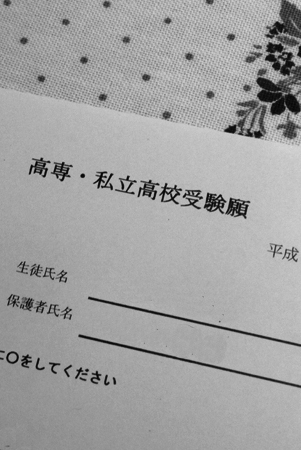 高専・私立高校受験願
平成
生徒氏名
保護者氏名
に〇をしてください